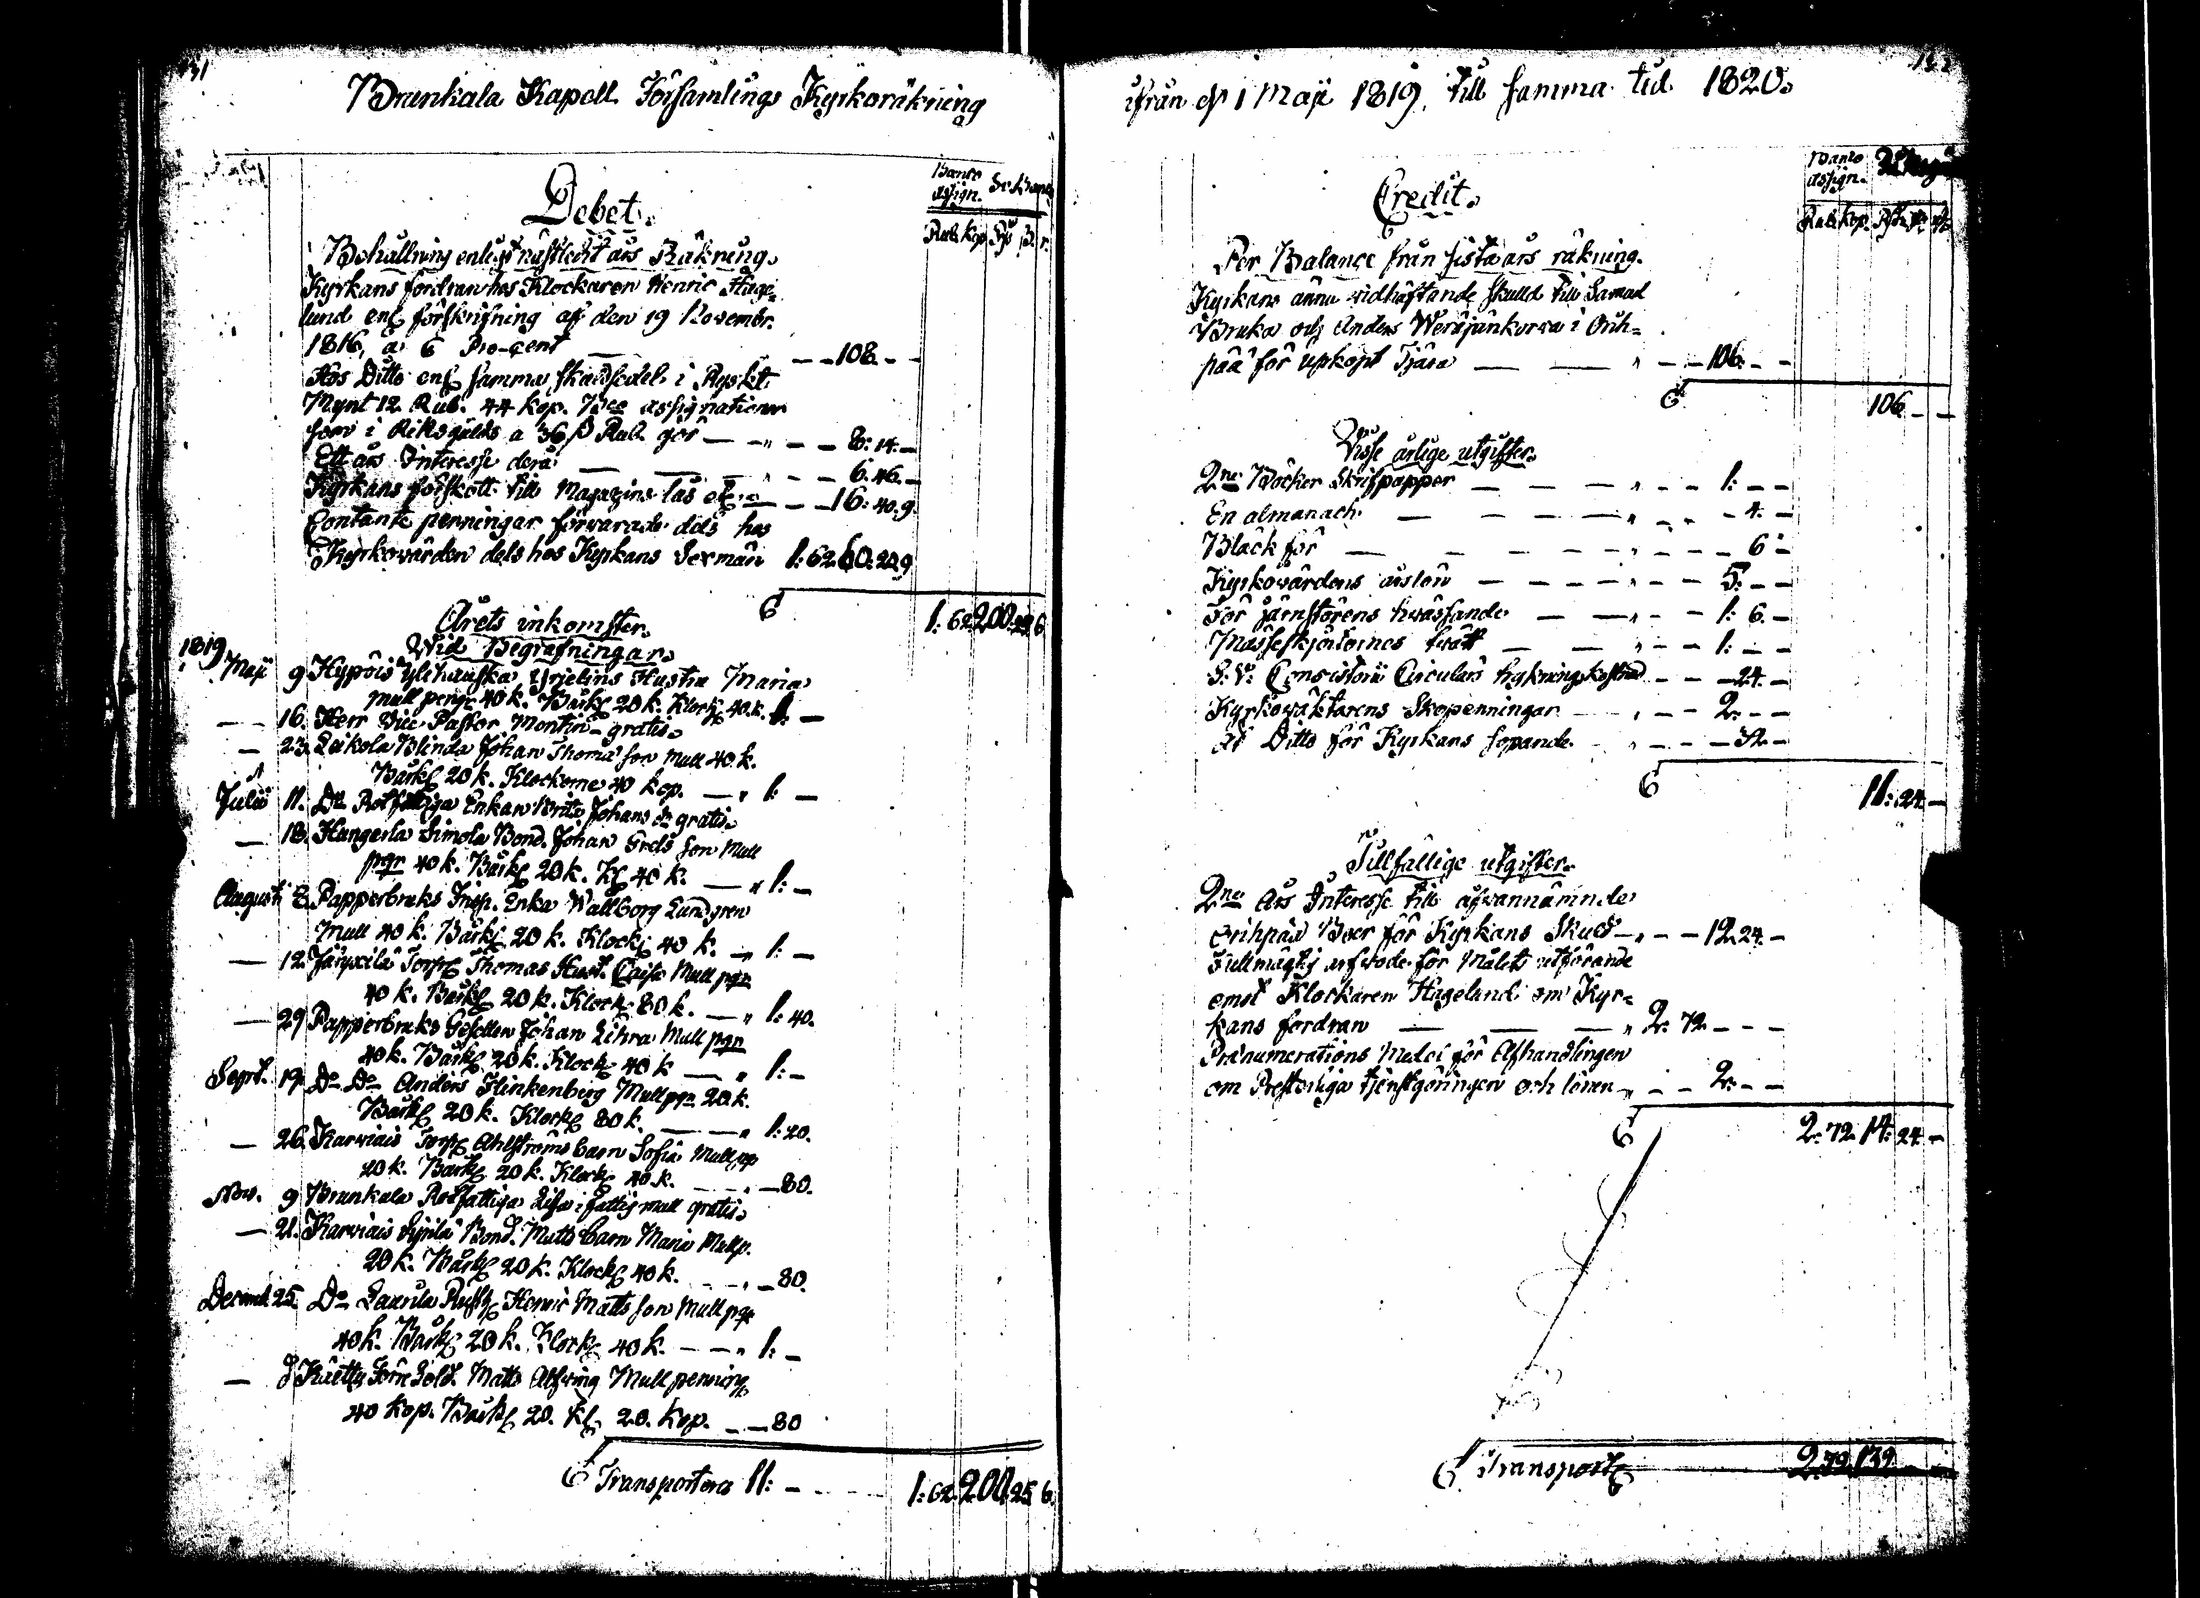 131
Brunkala Kapell Församlings Kyrkoräkning
Debet.
Banco assign.
Rub. kop.
Behållning enligt nästledit års Räkning.
Kyrkans fordran hos Klockaren Henric Hage-
lund enl. förskrifning af den 19 Novembr.
1816, a 6 Pro-Cent — — 108. — —
Hos Ditto enl. samma skuldsedel i Ryskt
Mynt 12 Rub. 44 kop. Bco assignationer
som i Riksgälds a 36 ß Rub. gör — — 8: 14. —
Ett års Interesse derå — — 6. 46. —
Kyrkans förskott till Magazins lås — — 16: 40. 9.
Contante penningar förvarade dels hos
Kyrkovärden dels hos Kyrkans Sexmän 1: 62. 60: 20. 9
1: 62. 200.
Årets inkomster.
Wid Begrafningar.
1819
Maji 9 Hypöis Ylehauska Yrjelins Hustru Maria
mull peng. 40 k. Bårkl. 20 k. Klock. 40 k. 1: —
— 16. Herr Vice Pastor Montin gratis.
— 23. Leikola Blinda Johan Thomas son Mull 40 k.
Bårkl. 20 k. Klockorne 40 kop. — 1: —
Julii 11. Do Rotfattiga Enkan Brita Johans dr gratis.
— 18. Simola Bond. Johan son Mull
pgr 40 k. Bårkl. 20 k. Kl. 40 k. — 1: —
Augusti 8. Papperbruks Insp. Enka Wallborg Lundgren
Mull 40 k. Bårkl. 20 k. Klock. 40 k. — 1: —
— 12. Torp. Thomas Hust. Caisa Mull pgr
40 k. Bårkl. 20 k. Klock. 80 k. — 1: 40.
— 29 Papperbruks Gesellen Johan Mull pgr
40 k. Bårkl. 20 k. Klock. 40 k — 1: —
Sept. 19. Do Do Anders Flinkenberg Mull pgr 20 k.
Bårkl. 20 k. Klock. 80 k. — — 1: 20.
— 26. Karviais Torp. Ahlströms barn Sofia Mull pgr
20 k. Bårkl. 20 k. Klock. 40 k. — — 80.
Nov. 9 Brunkala Rotfattiga Lisa i fattig mull gratis.
— 21. Karviais Bond. Matts barn Maria Mullp.
20 k. Bårkl. 20 k. Klock. 40 k. — — 80.
Decemb. 25. Do Laurila Henric Matts son Mull pgr
40 k. Bårkl. 20 k. Klock. 40 k. — — 1: —
— Sold. Matts Mull penning
40 kop. Bårkl. 20. Kl. 20. kop. — — 80
Transporteras 11: — 1: 62. 200. 25 6.
ifrån d. 1 Maji 1819, till samma tid 1820.
Credit.
Banco assign.
Rub. kop.
Per Balance från sista års räkning.
Kyrkans ännu vidhäftande skuld till
och Anders i Orih-
pää för upköpt Tjära — — — — 106. — —
106. — —
Visse årlige utgifter.
2ne Böcker Skrifpapper — — — 1: — —
En almanach — — — — 4. —
Bläck för — — — — 6 —
Kyrkovärdens årslön — — — 5. — —
För järnstörens hvässande — — — 1: 6. —
Messeskjortornes tvätt — — — 1: — —
S. V. Consistorii Circulairs tryknings kostnad — — 24. —
Kyrkovaktarens Skopenningar — — 2. — —
Åt Ditto för Kyrkans sopande — — 32. —
11: 24 —
Tillfällige utgifter.
2ne års Interesse till ofvannämnde
Orihpää Boer för Kyrkans Skuld — — 12. 24. —
Fullmägtig arfvode för Målets utförande
emot Klockaren Hagelund om Kyr-
kans fordran — — — 2: 72 — — —
Prænumerations Medel för Afhandlingen
om Presterliga tjenstgöringen och lönen — — 2. — —
2: 72. 14: 24 —
Transport. 2. 72. 132